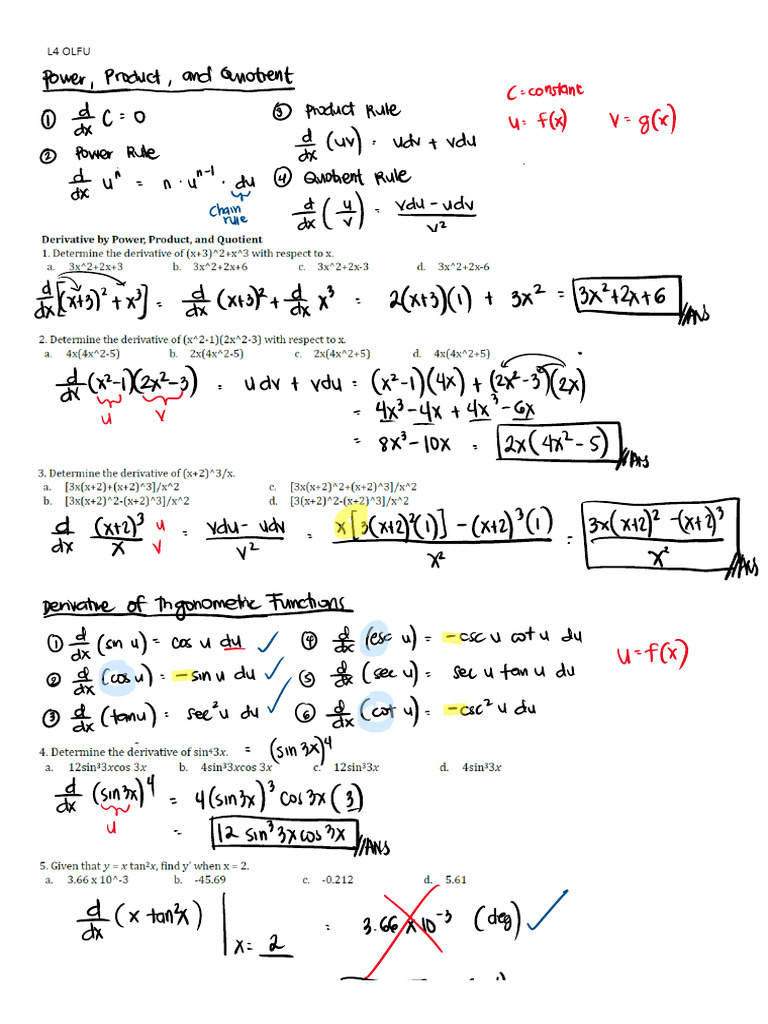 L4 OLFU
Power, Product, and Quotient
① d/dx C = 0
② Power Rule
d/dx uⁿ = n · uⁿ⁻¹ · du
Chain rule
③ Product Rule
d/dx (uv) = udv + vdu
④ Quotient Rule
d/dx (u/v) = vdu - udv / v²
C = constant
u = f(x) v = g(x)
Derivative by Power, Product, and Quotient
1. Determine the derivative of (x+3)^2+x^3 with respect to x.
a. 3x^2+2x+3 b. 3x^2+2x+6 c. 3x^2+2x-3 d. 3x^2+2x-6
d/dx [(x+3)² + x³] = d/dx (x+3)² + d/dx x³ = 2(x+3)(1) + 3x² = 3x²+2x+6 //Ans
2. Determine the derivative of (x^2-1)(2x^2-3) with respect to x.
a. 4x(4x^2-5) b. 2x(4x^2-5) c. 2x(4x^2+5) d. 4x(4x^2+5)
d/dx (x²-1)(2x²-3) = udv + vdu = (x²-1)(4x) + (2x²-3)(2x)
u v
= 4x³ - 4x + 4x³ - 6x
= 8x³ - 10x = 2x(4x² - 5) //Ans
3. Determine the derivative of (x+2)^3/x.
a. [3x(x+2)+(x+2)^3]/x^2 c. [3x(x+2)^2+(x+2)^3]/x^2
b. [3x(x+2)^2-(x+2)^3]/x^2 d. [3(x+2)^2-(x+2)^3]/x^2
d/dx (x+2)³/x u v = vdu - udv / v² = x[3(x+2)²(1)] - (x+2)³(1) / x² = 3x(x+2)² - (x+2)³ / x² //Ans
Derivative of Trigonometric Functions
① d/dx (sin u) = cos u du
② d/dx (cos u) = -sin u du
③ d/dx (tan u) = sec² u du
④ d/dx (csc u) = -csc u cot u du
⑤ d/dx (sec u) = sec u tan u du
⑥ d/dx (cot u) = -csc² u du
u = f(x)
4. Determine the derivative of sin⁴3x. = (sin 3x)⁴
a. 12sin³3xcos 3x b. 4sin³3xcos 3x c. 12sin³3x d. 4sin³3x
d/dx (sin 3x)⁴ = 4(sin 3x)³ cos 3x (3)
u
= 12 sin³ 3x cos 3x //Ans
5. Given that y = x tan²x, find y' when x = 2.
a. 3.66 x 10^-3 b. -45.69 c. -0.212 d. 5.61
d/dx (x tan²x) | x = 2 = 3.66 x 10⁻³ (deg)